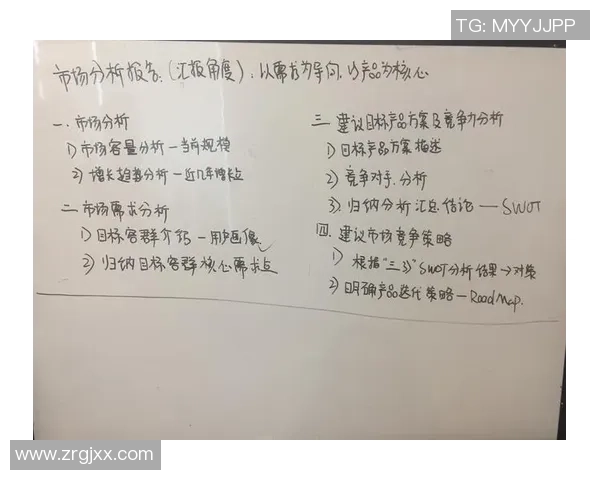 TG: MYYJJPP
市场分析报告:(汇报角度),以需求为导向,以产品为核心
一. 市场分析
1) 市场容量分析—当前规模
2) 增长趋势分析—近几年增长点
二. 市场需求分析
1) 目标客群介绍—用户画像
2) 归纳目标客群核心需求点
三. 建议目标产品方案及竞争力分析
1) 目标产品方案描述
2) 竞争对手分析
3) 归纳分析汇总结论——SWOT
四. 建议市场竞争策略
1) 根据"三.3)"SWOT分析结果→对策
2) 明确产品迭代策略—Road Map.
www.zrgjxx.com